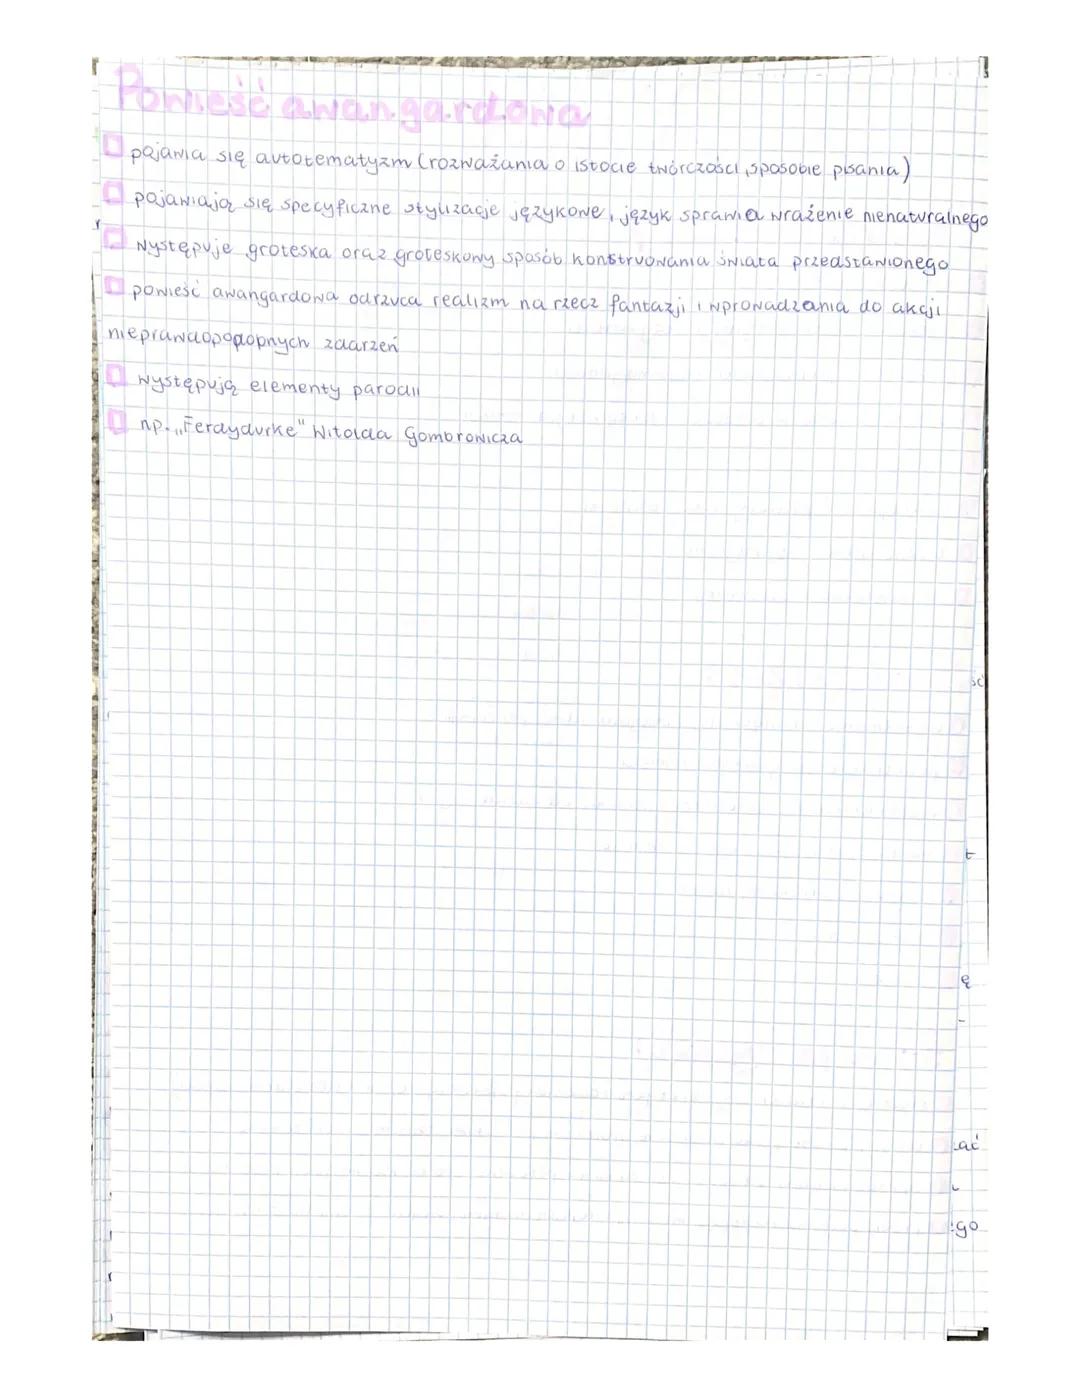 Powieść awangardowa
pojawia się autotematyzm (rozważania o istocie twórczości, sposobie pisania)
pojawiają się specyficzne stylizacje językowe, język sprawia wrażenie nienaturalnego
występuje groteska oraz groteskowy sposób konstruowania świata przedstawionego
powieść awangardowa odrzuca realizm na rzecz fantazji i wprowadzania do akcji
nieprawdopodobnych zdarzeń
występują elementy parodii
np. „Ferdydurke" Witolda Gombrowicza
ść
t
ę
-
ać
go